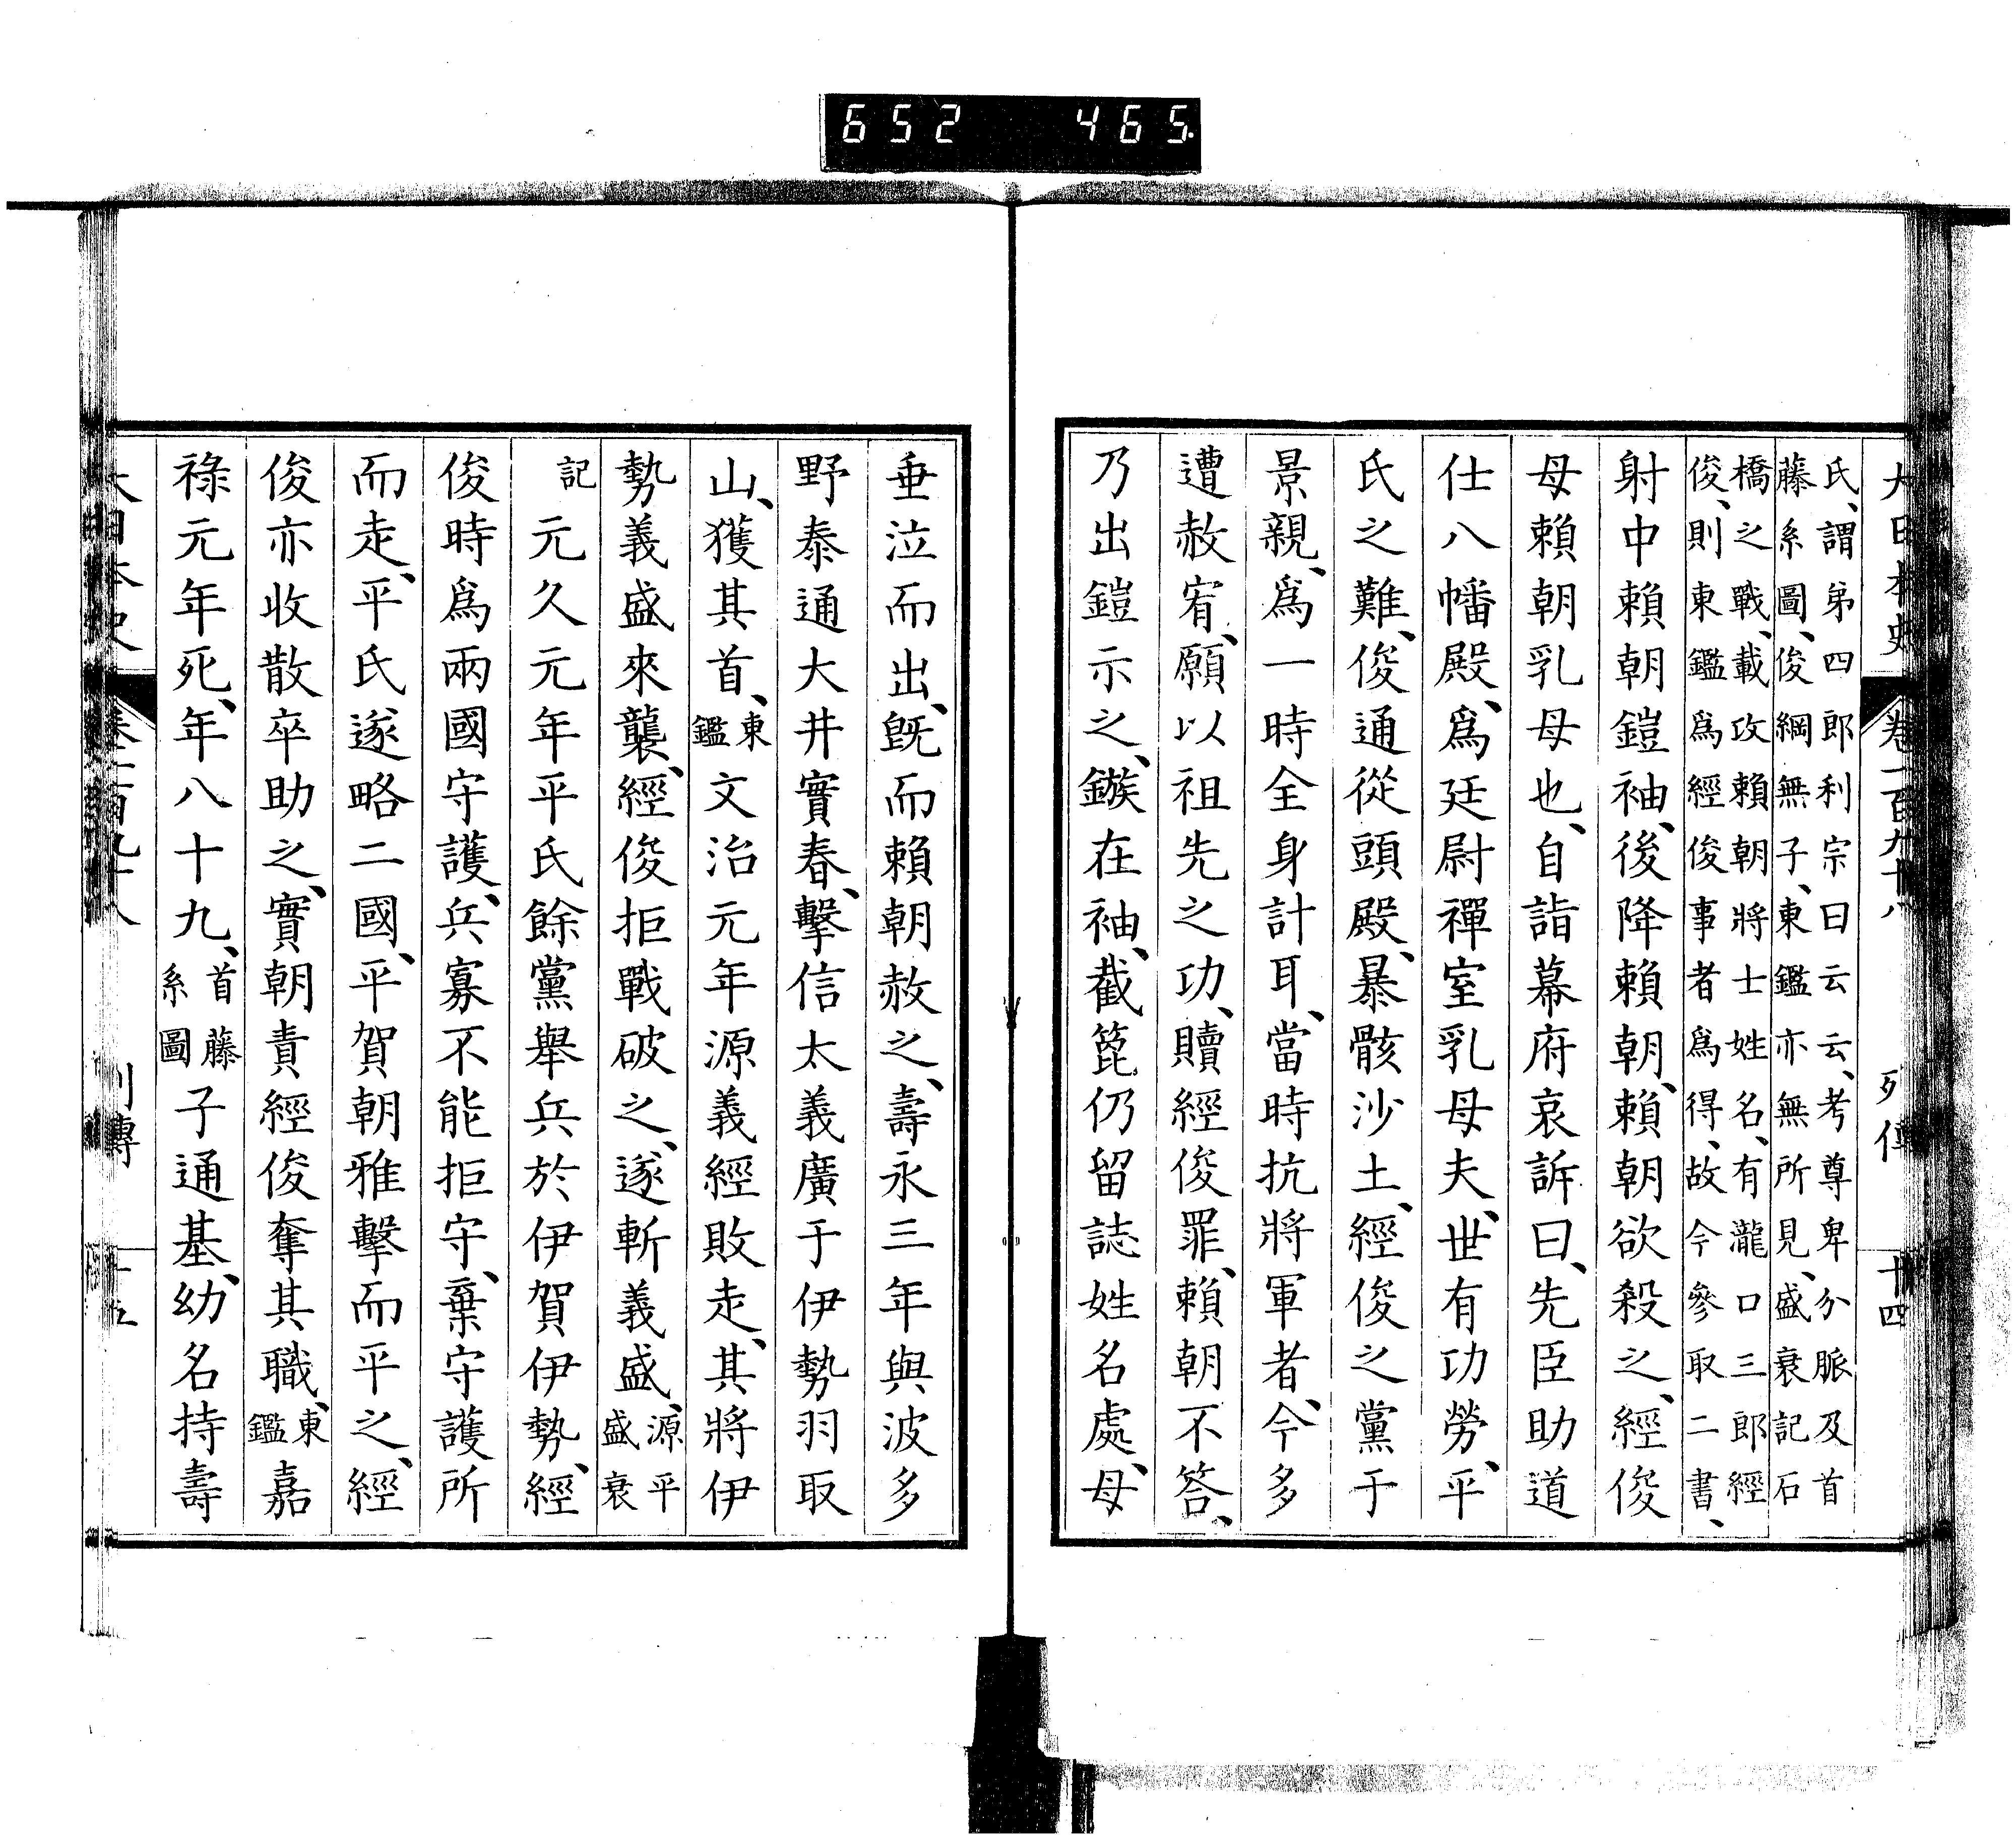 652 465
大日本史 卷一百九十八 列傳 十四
氏、謂弟四郎利宗曰云云、考尊卑分脈及首
藤系圖、俊綱無子、東鑑亦無所見、盛衰記石
橋之戰、載攻賴朝將士姓名、有瀧口三郎經
俊、則東鑑爲經俊事者爲得、故今參取二書、
射中賴朝鎧袖、後降賴朝、賴朝欲殺之、經俊
母賴朝乳母也、自詣幕府哀訴曰、先臣助道
仕八幡殿、爲廷尉禪室乳母夫、世有功勞、平
氏之難、俊通從頭殿、暴骸沙土、經俊之黨于
景親、爲一時全身計耳、當時抗將軍者、今多
遭赦宥、願以祖先之功、贖經俊罪、賴朝不答、
乃出鎧示之、鏃在袖、截箆仍留誌姓名處、母
垂泣而出、既而賴朝赦之、壽永三年與波多
野泰通大井實春、擊信太義廣于伊勢羽取
山、獲其首、東鑑文治元年源義經敗走、其將伊
勢義盛來襲、經俊拒戰破之、遂斬義盛、源平盛衰
記元久元年平氏餘黨舉兵於伊賀伊勢、經
俊時爲兩國守護、兵寡不能拒守、棄守護所
而走、平氏遂略二國、平賀朝雅擊而平之、經
俊亦收散卒助之、實朝責經俊奪其職、東鑑嘉
祿元年死、年八十九、首藤系圖子通基、幼名持壽
大日本史 卷一百九十八 列傳 十五